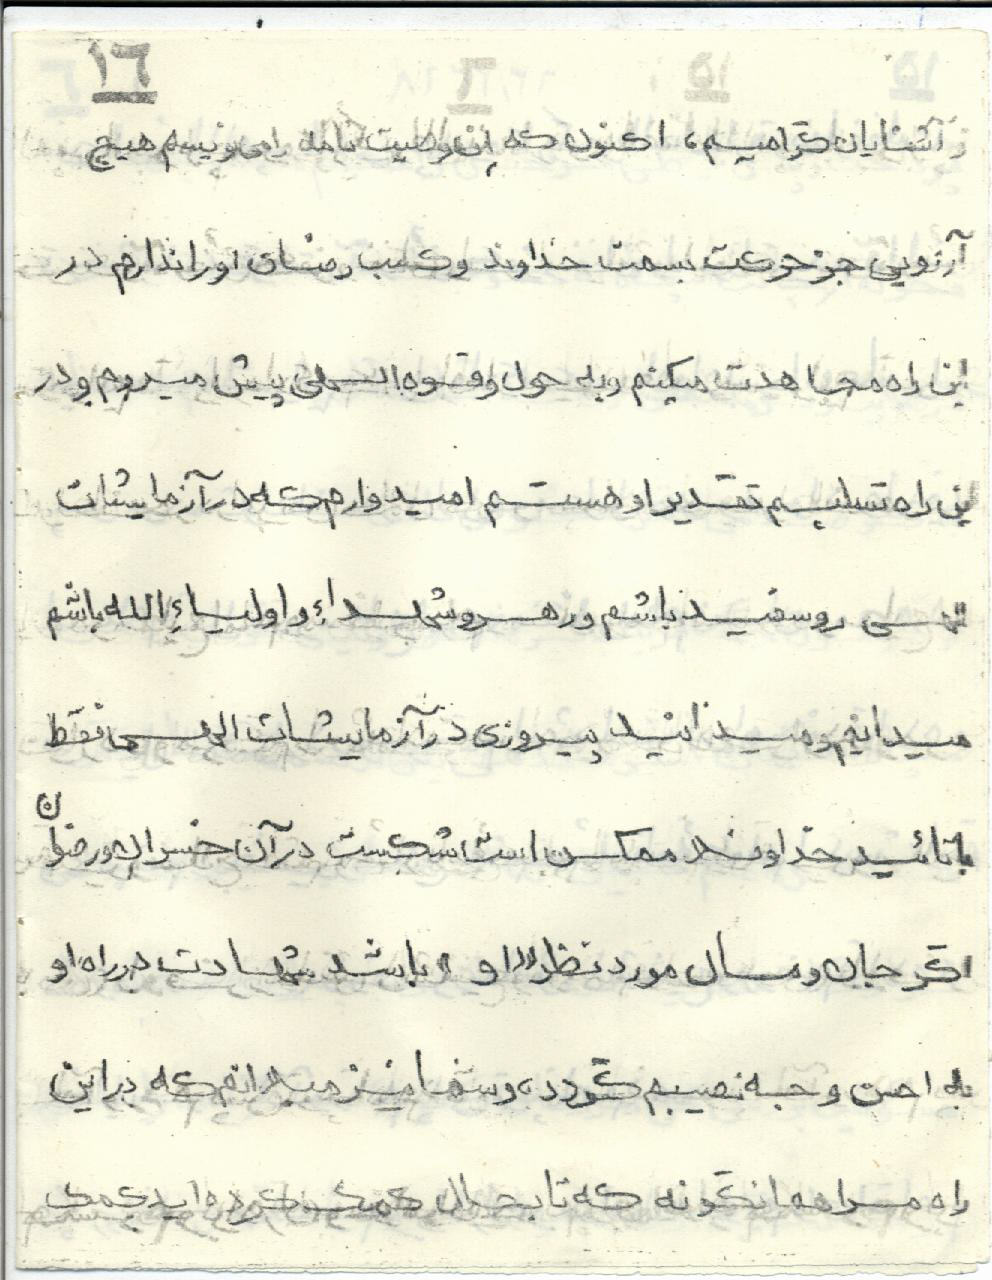 ١٦
آشنایان گرامیم، اکنون که این وصیت نامه را می نویسم هیچ
آرزویی جز حرکت بسمت خداوند و کسب رضای او را ندارم در
این راه مجاهدت میکنم و به حول و قوه الهی پیش میروم و در
این راه تسلیم تقدیر او هستم امیدوارم که در آزمایشات
الهی روسفید باشم و رهرو شهداء و اولیاء الله باشم
میدانیم و میدانید پیروزی در آزمایشات الهی فقط
با تائید خداوند ممکن است شکست در آن خسران و رضوان
اگر جان و مال مورد نظر "او" باشد شهادت در راه او
به احسن وجه نصیبم گردد، و شما نیز میدانم که در این
راه مرا همانگونه که تا بحال کمک کرده اید کمک